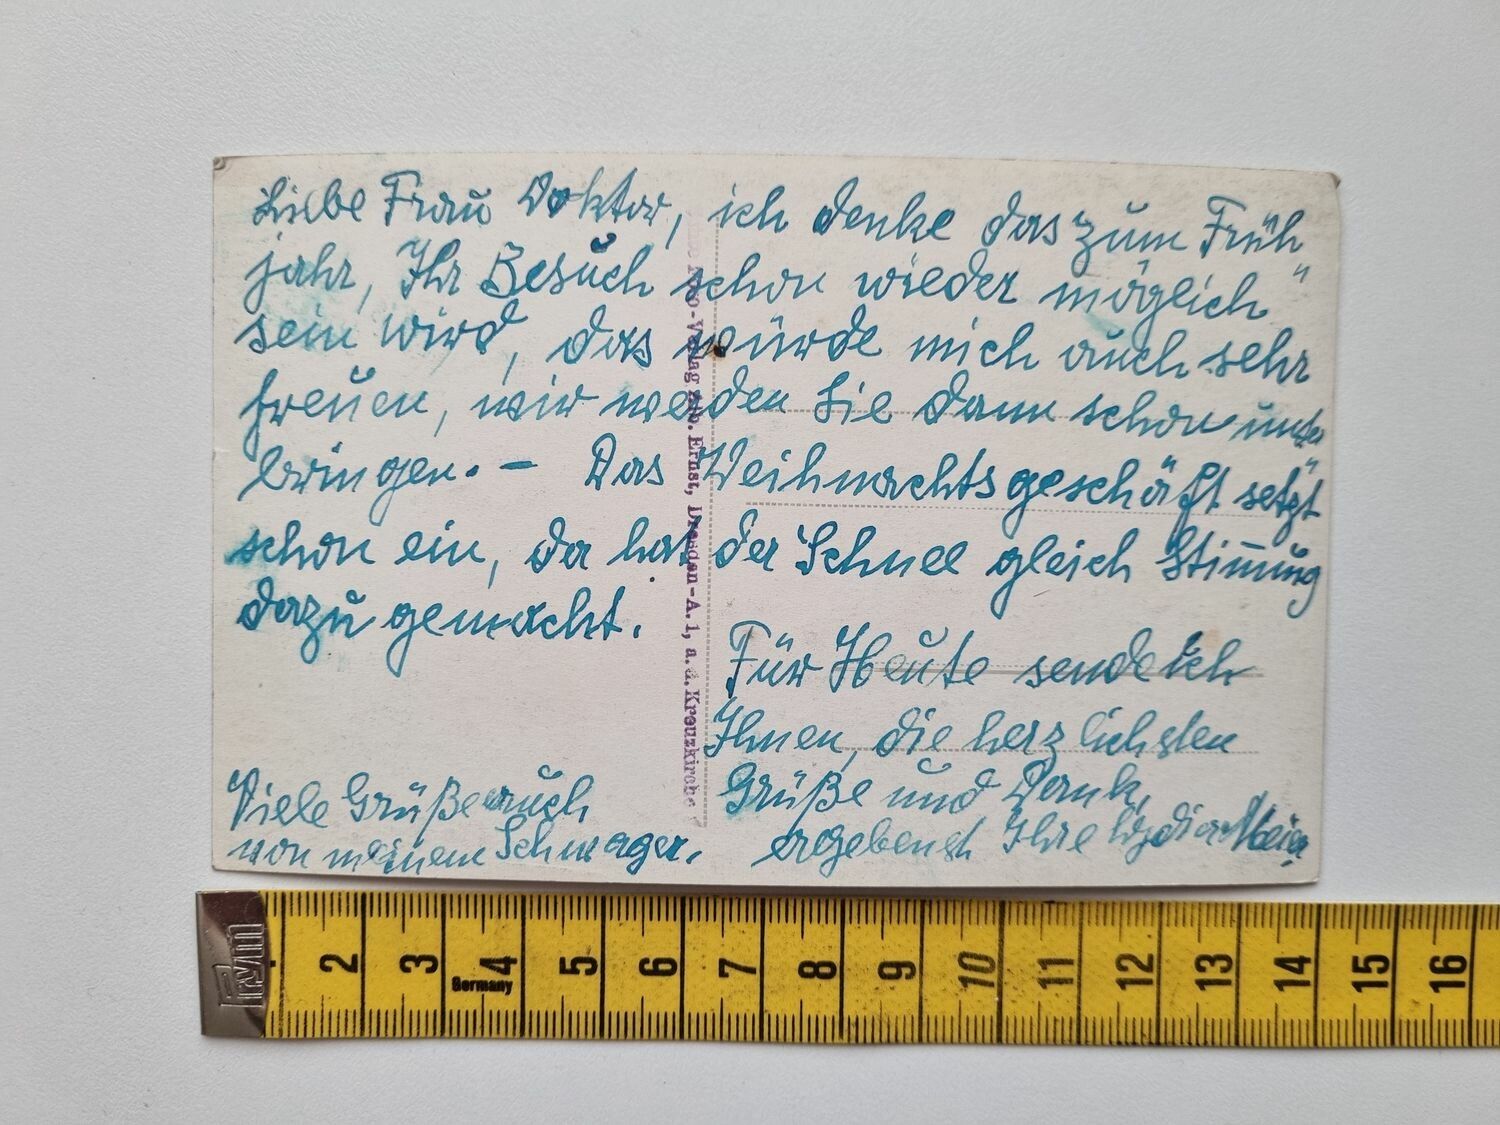 Liebe Frau Doktor, ich denke das zum Früh"
jahr, Ihr Besuch schon wieder möglich
sein wird, das würde mich auch sehr
freuen, wir werden Sie dann schon unter"
bringen. – Das Weihnachtsgeschäft setzt
schon ein, da hat der Schnee gleich Stimmung
dazu gemacht.
Für Heute sende ich
Ihnen, die herzlichsten
Grüße und Dank,
ergebenst Ihre Lydia Meier
Viele Grüße auch
von meinem Schwager.
-Verlag Ernst, Dresden-A. 1, a. d. Kreuzkirche
prym
2 3 4 5 6 7 8 9 10 11 12 13 14 15 16
Germany